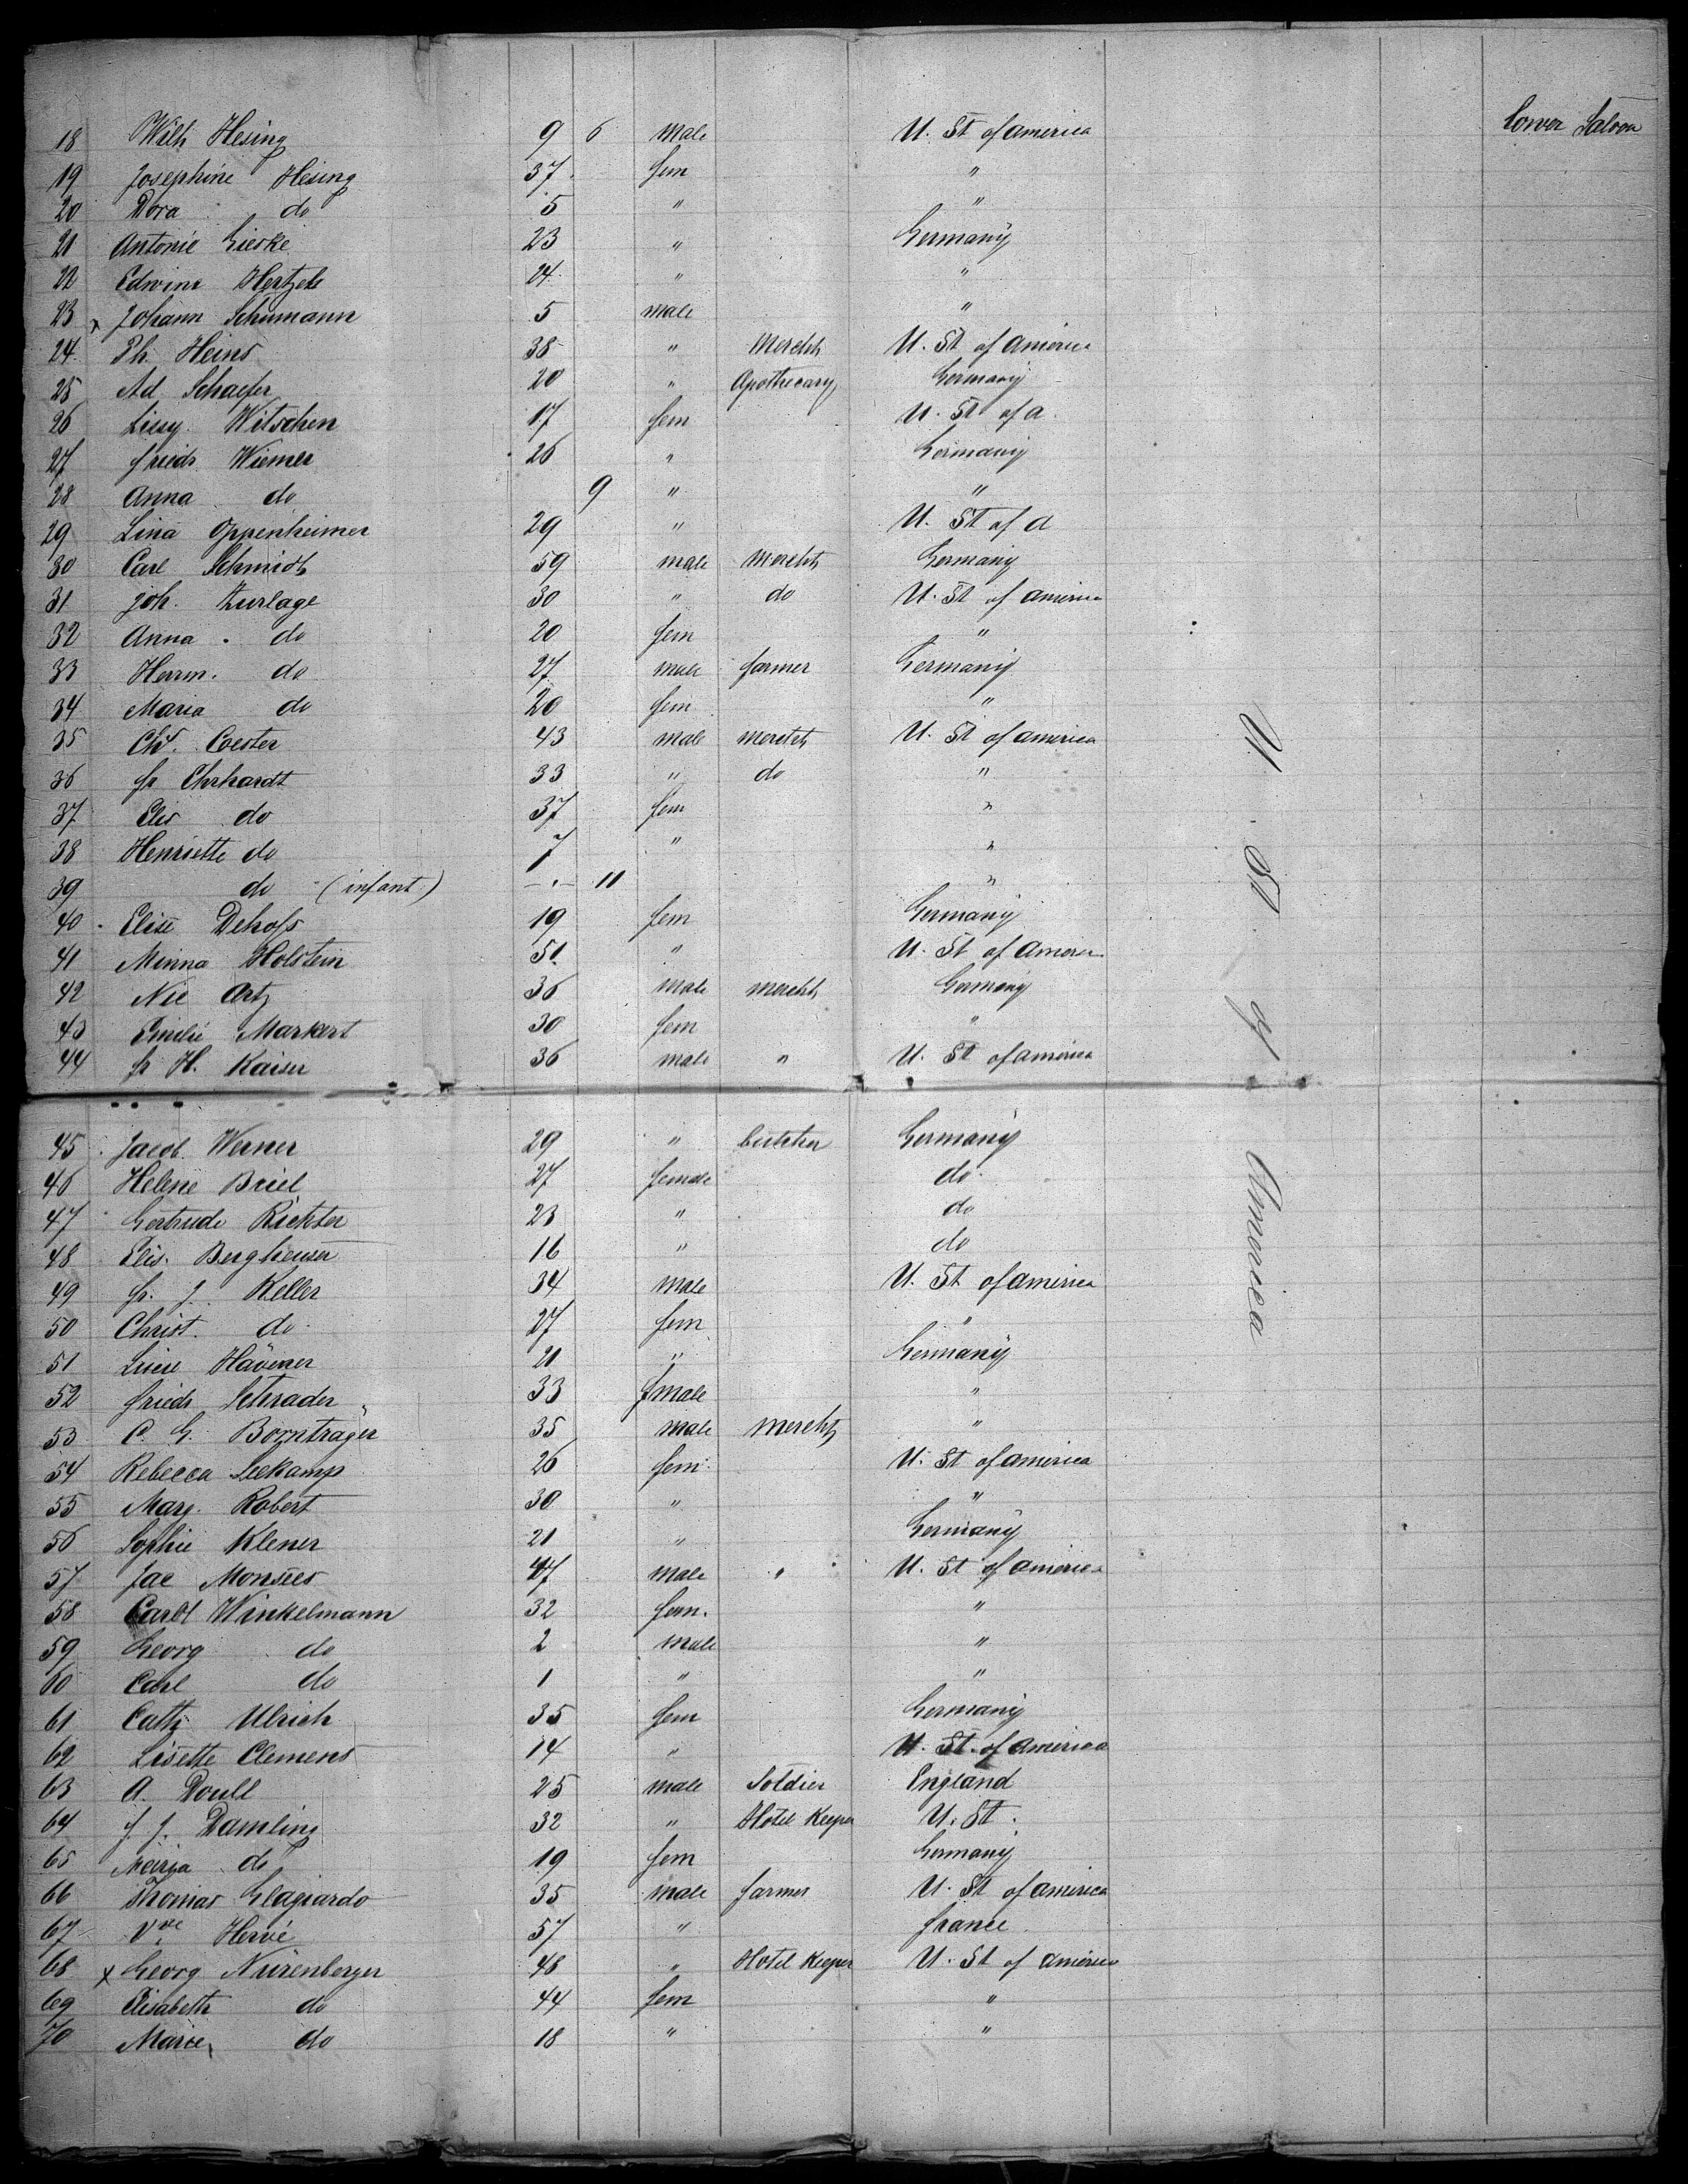 18 Wilh Hesing 9 6 Male U. St of America Lower Saloon
19 Josephine Hesing 37 fem "
20 Dora do 5 " "
21 Antonie Gierke 23 " Germany
22 Edwine 24 " "
23 x Johann Schumann 5 male "
24 Ph. Heins 38 " Mercht U. St of America
25 Ad Schaefer 20 " Apothecary Germany
26 Lissy Witschen 17 fem U. St of A
27 Friedr Wiemer 26 " Germany
28 Anna do 9 " "
29 Lina Oppenheimer 29 " U. St of A
30 Carl Schmidt 59 male Mercht Germany
31 Joh. Zurlage 30 " do U. St of America
32 Anna do 20 fem "
33 Herrm. do 27 male farmer Germany
34 Maria do 20 fem "
35 Chr. Coester 43 male mercht U. St of America
36 fr Ehrhardt 33 " do "
37 Elis do 37 fem "
38 Henriette do 7 " "
39 do (infant) 11 "
40 Elise Dehoss 19 fem Germany
41 Minna Holstein 51 " U. St of America
42 Nic Artz 36 male mercht Germany
43 Emilie Markert 30 fem "
44 fr H. Kaiser 36 male " U. St of America
45 Jacob Werner 29 " butcher Germany
46 Helene Briel 27 female do
47 Gertrude Richter 23 " do
48 Elis. Bergheuser 16 " do
49 fr. J. Keller 34 male U. St of America
50 Christ. do 27 fem "
51 Hävener 21 " Germany
52 Friedr Schrader 33 fmale "
53 C. G. Bornträger 35 male mercht "
54 Rebecca Seekamp 26 fem U. St of America
55 Marg. Robert 30 " "
56 Sophie Klener 21 " Germany
57 Jac Monsees 47 male " U. St of America
58 Winkelmann 32 fem. "
59 Georg do 2 male "
60 Carl do 1 " "
61 Cath Ulrich 35 fem Germany
62 Lisette Clemens 14 " U. St. of America
63 A. Doull 25 male Soldier England
64 J. J. Damling 32 " Hotel Keeper U. St.
65 Maria do 19 fem Germany
66 Thomas 35 male farmer U. St of America
67 Vve Hervé 57 " france
68 x Georg Nürenberger 48 " Hotel Keeper U. St of America
69 Elisabeth do 44 fem "
70 Marie do 18 " "
U. St. of America